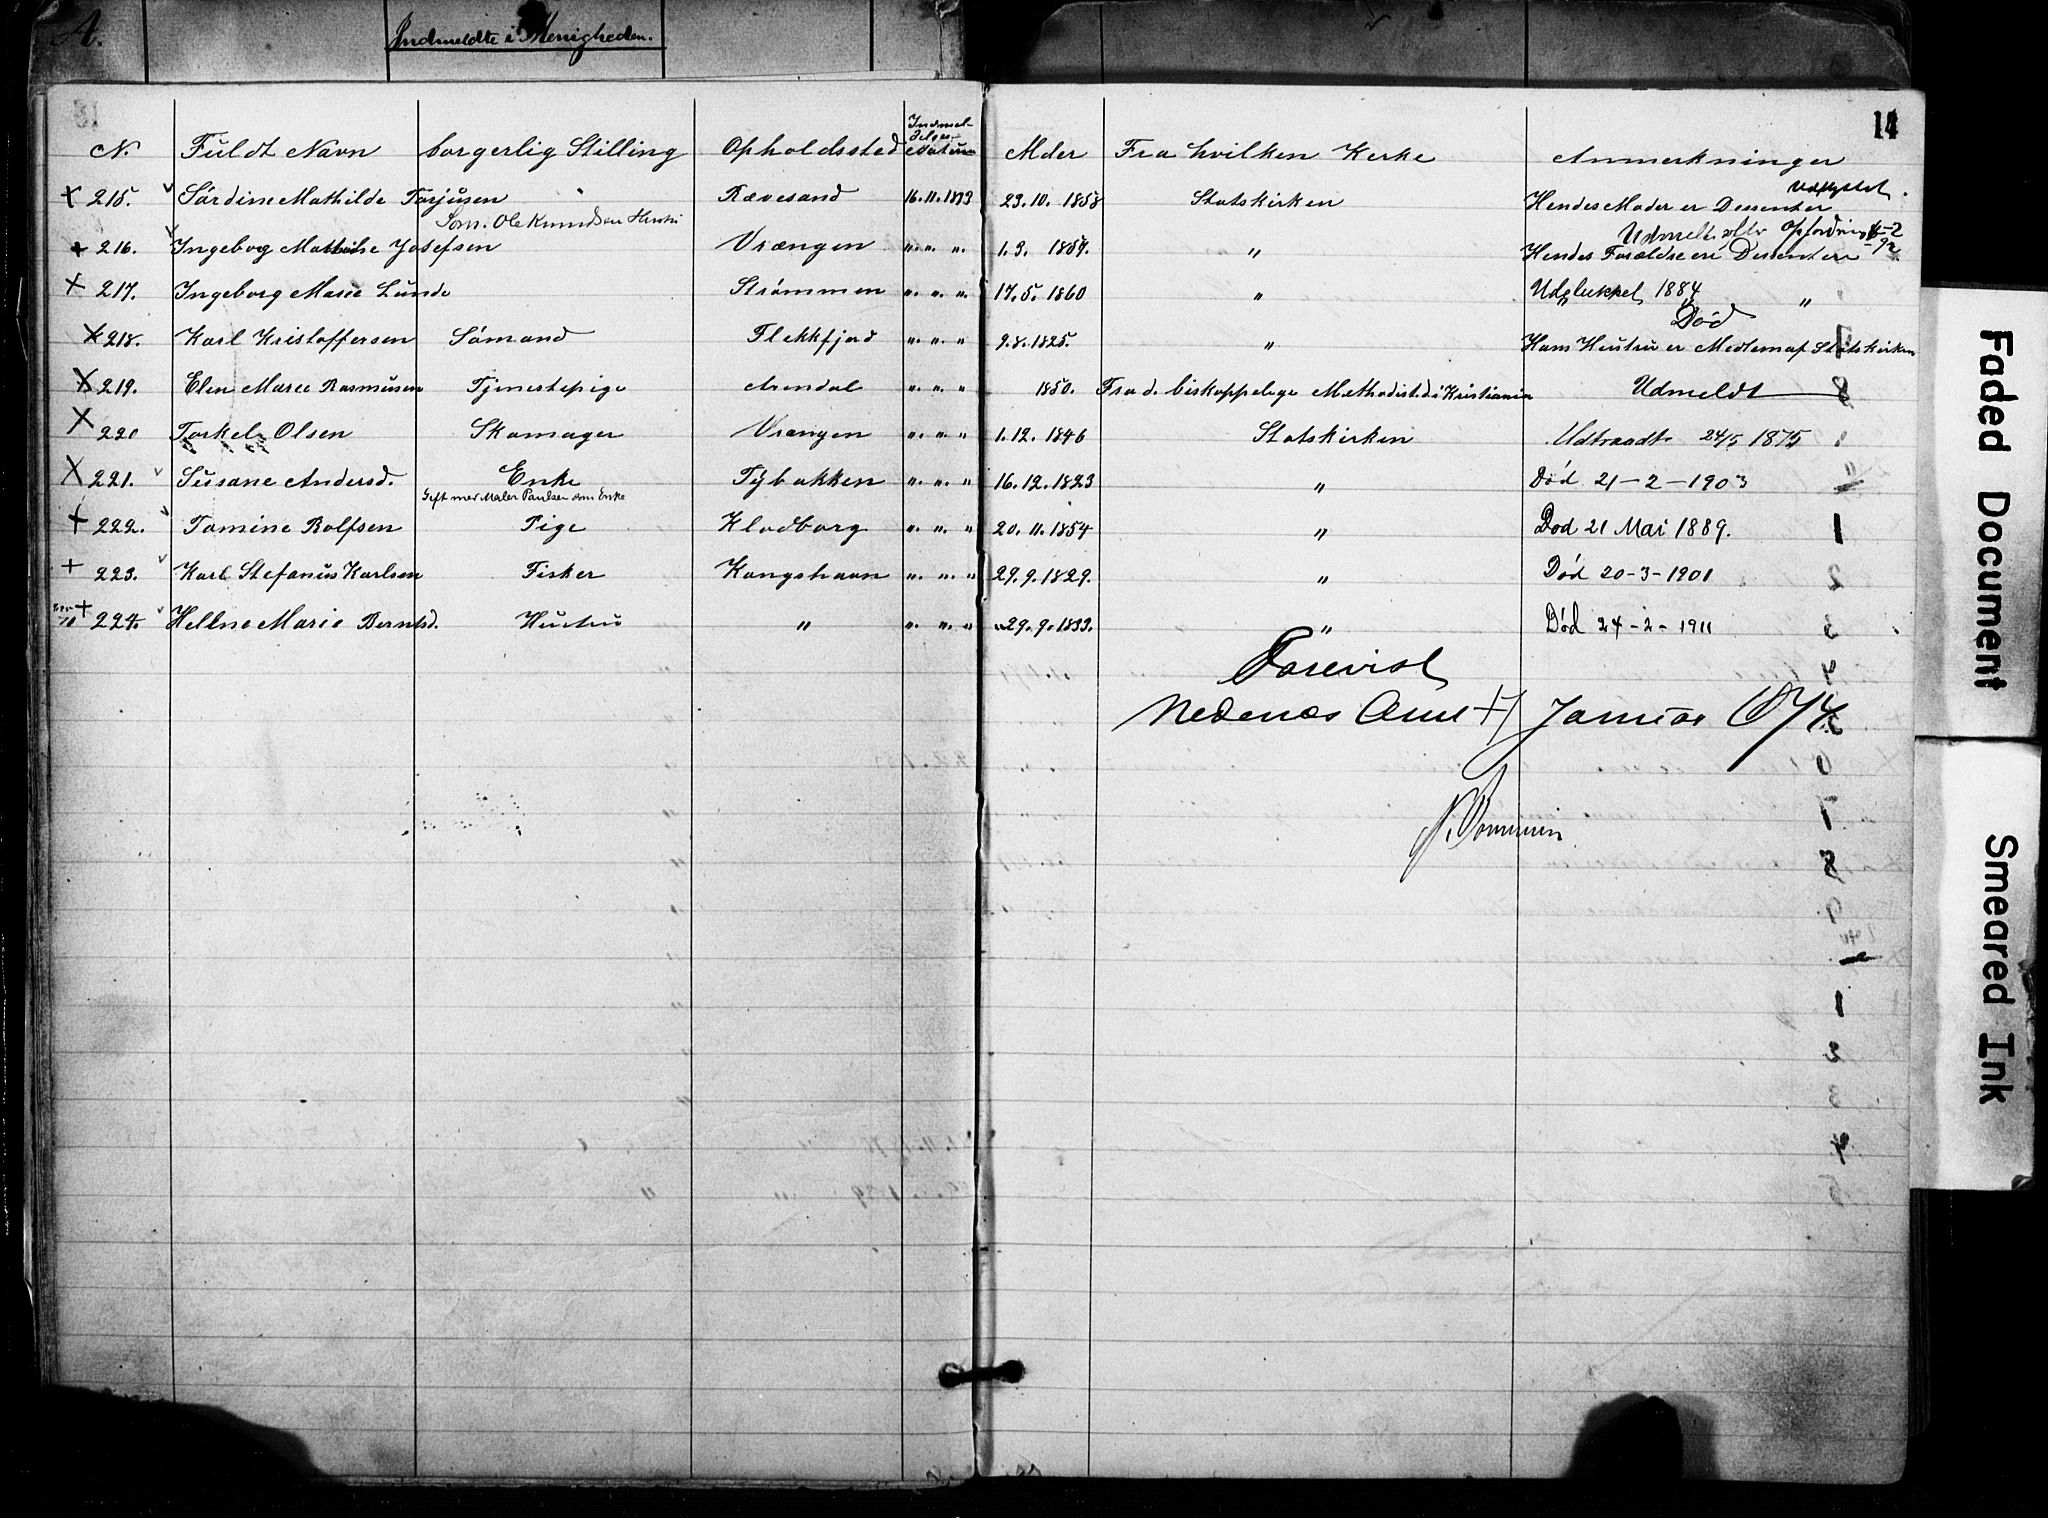 A. Indmeldte i Menigheden.
14
N. Fuldt Navn borgerlig Stilling Opholdssted Indmeldelsesdatum Alder Fra hvilken Kerke Anmerkninger
Udflyttet.
× 215. Sørdine Mathilde Torjusen " Rævesand 16.11.1873 23.10.1858 Statskirken Hendes Moder er Dessenter
Ole Knudsen Hustru Udmeldt efter Opfordring 4-2-92
+ 216. Ingeborg Mathilde Josefsen Vrængen " " " 1.3. 1857. " Hendes Forældre ere Dessentere
× 217. Ingeborg Marie Lunde Strømmen " " " 17.5.1860 " Udelukket 1884 "
Død
× 218. Karl Kristoffersen Sømand Flekkfjord " " " 9.8.1825. " Hans Hustru er Medlem af Statskirken
× 219. Elen Marie Rasmusen Tjenestepige Arendal " " " 1850. Fra d. biskoppelige Methodistk. i Kristiania Udmeldt
× 220 Torkel Olsen Skomager Vrængen " " " 1.12.1846 Statskirken Udtraadt 24/5 1875
× 221. Susane Andersd. Enke Tybakken " " " 16.12.1823 " Død 21-2-1903
Gift med Maler Paulsen som Enke
+ 222. Tomine Rolfsen Pige Klodborg " " " 20.11.1854 " Død 21 Mai 1889.
+ 223. Karl Stefanus Karlsen Fisker Kongshavn " " " 29.9.1829. " Død 20-3-1901
+ 224. Hellne Marie Berntsd. Hustru " " " " 29.9.1833. " Død 24-2-1911
Forevist
Nedenæs Amt 17 Januar 1874.
Faded Document
Smeared Ink